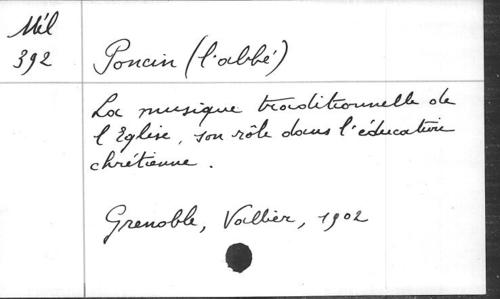 Mél
392
Poncin (l'abbé)
La musique traditionnelle de
l'Eglise, son rôle dans l'éducation
chrétienne.
Grenoble, Vallier, 1902